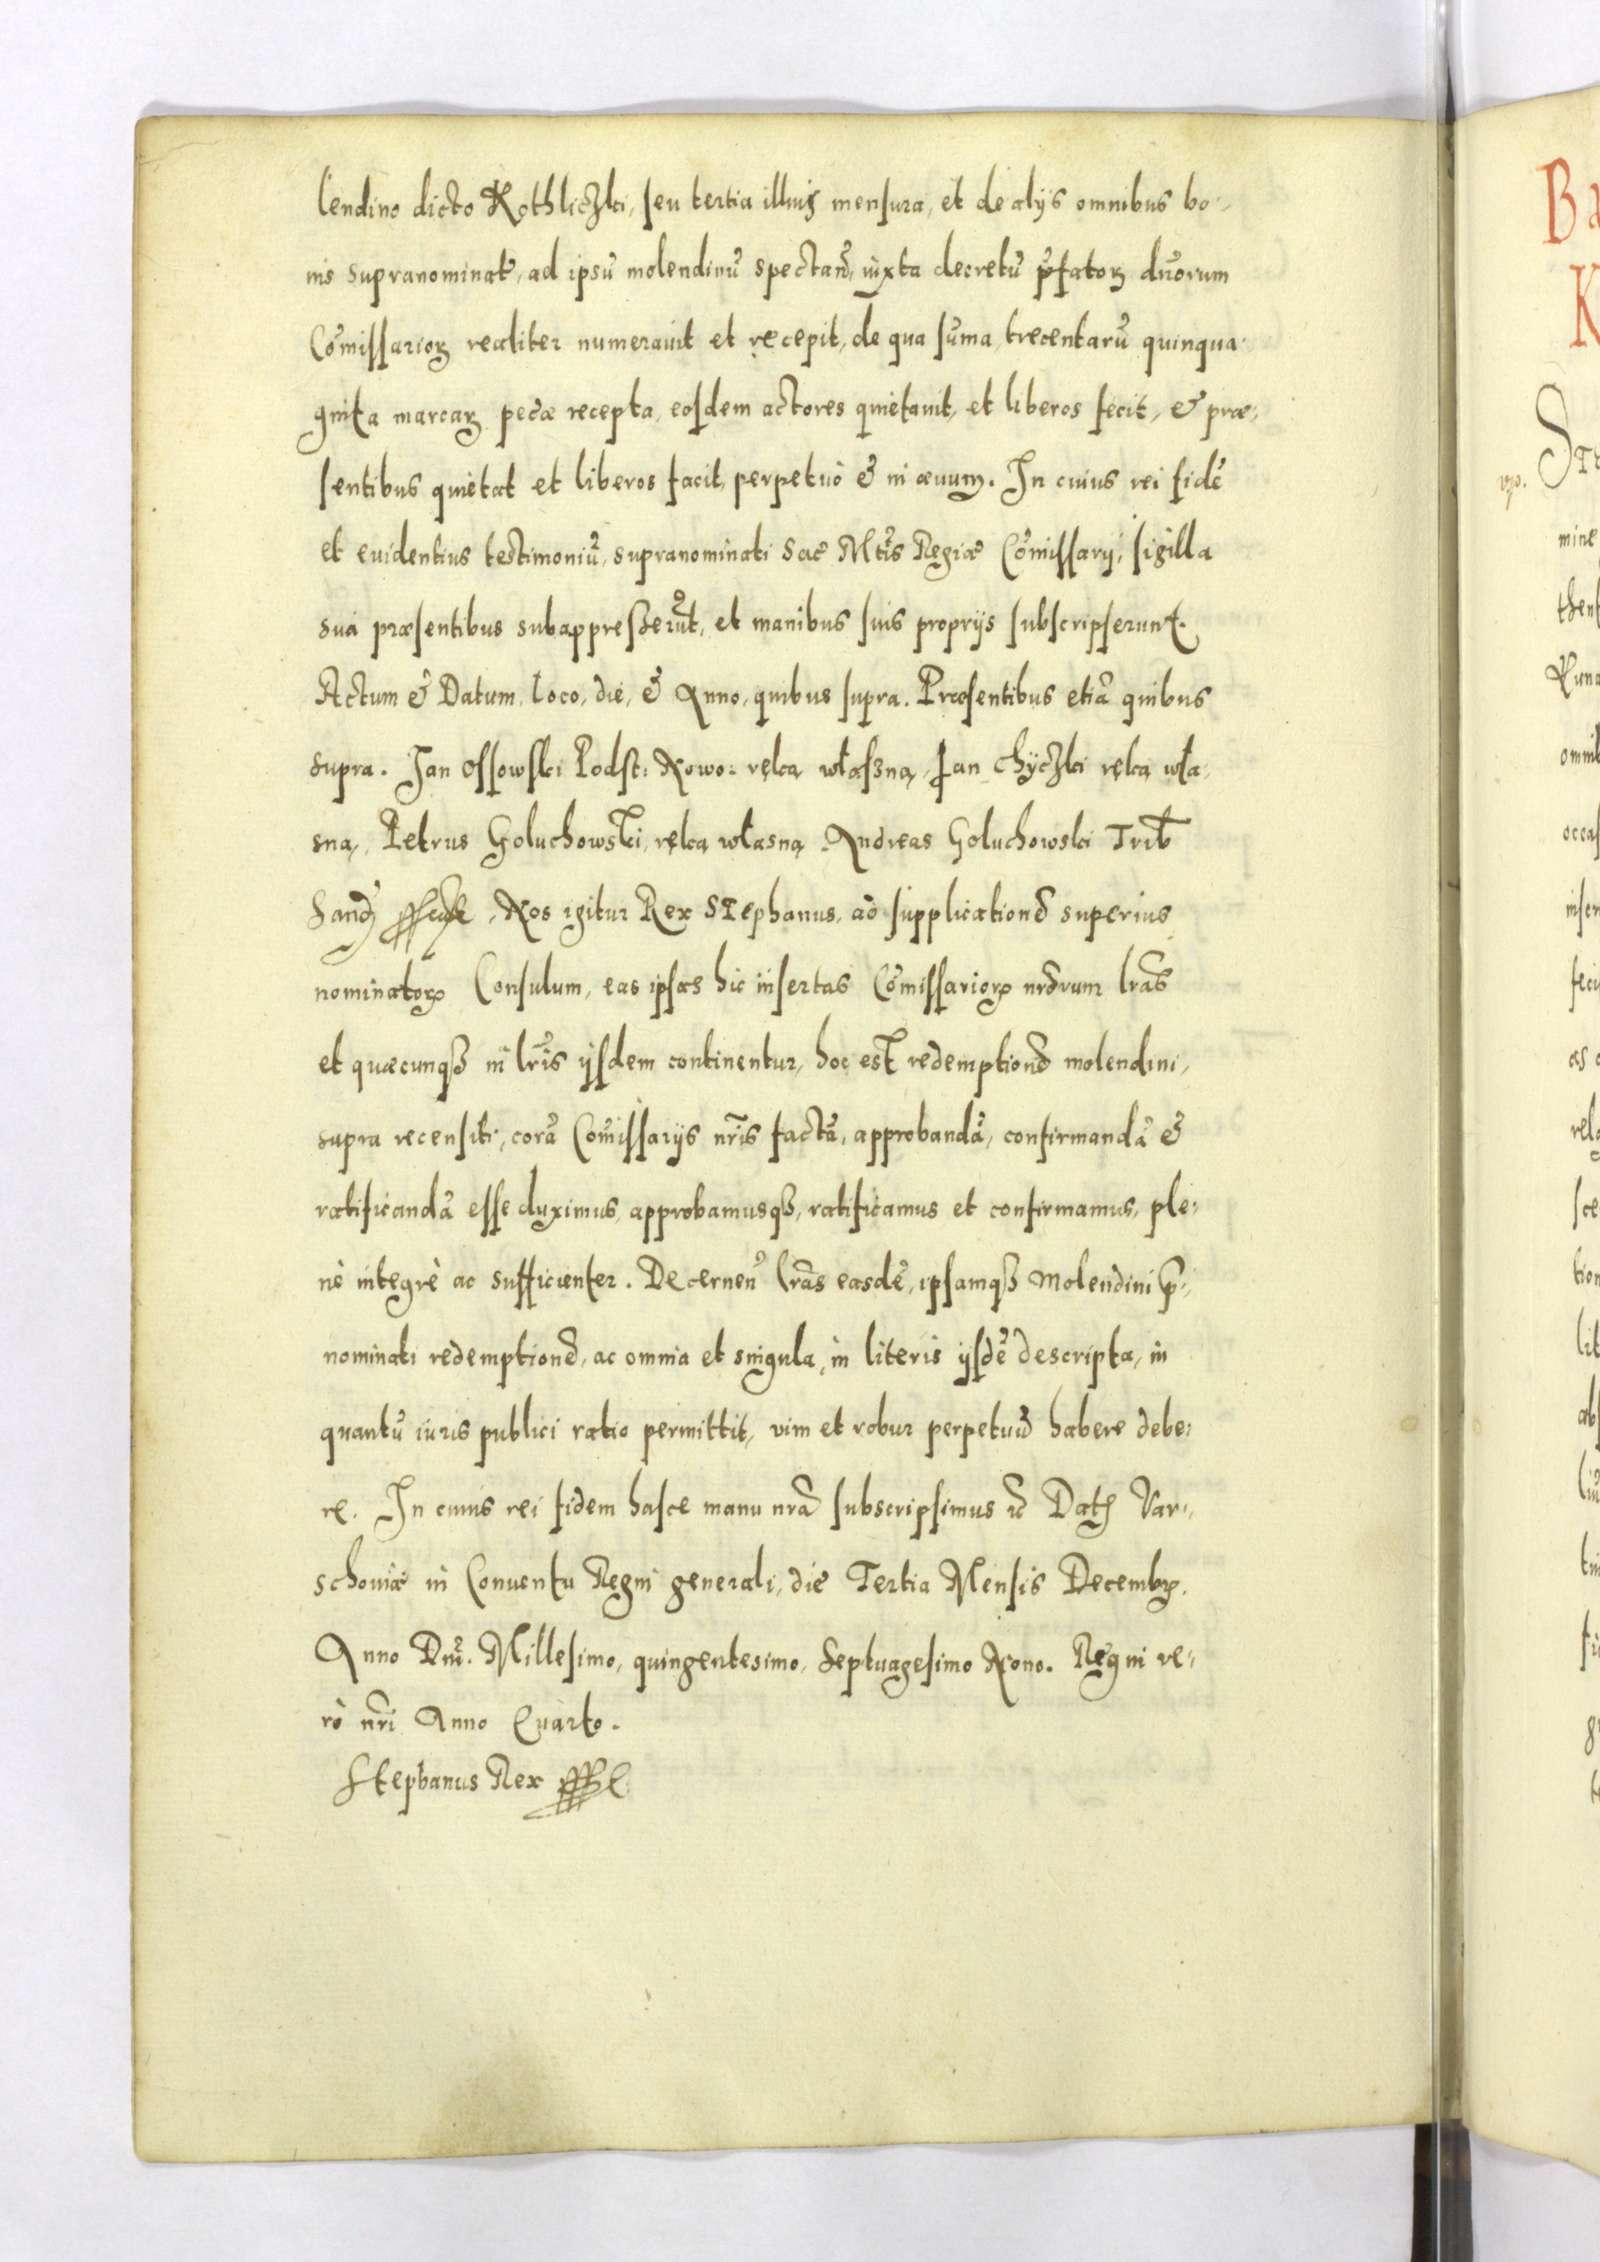 lendino dicto Kothliczki, seu tertia illius mensura, et de alijs omnibus bo-
nis supranominat̃, ad ipsũ molendinũ spectañ, iuxta decretũ p̃fatoꝝ duorum
Com̃issarioꝝ realiter numerauit et recepit, de qua sum̃a trecentarũ quinqua
ginta marcaꝝ pecæ recepta, eosdem actores quietauit, et liberos fecit, & præ-
sentibus quietat et liberos facit, perpetuò & in æuum. In cuius rei fidẽ
et euidentius testimoniũ, supranominati Sacæ Mt̃is Regiæ Com̃issarij, sigilla
sua præsentibus subappresserũt, et manibus suis proprijs subscripserunt.
Actum & Datum, loco, die, & Anno, quibus supra. Præsentibus etiã quibus
supra. Jan Ossowski Podst: Nowo: ręką własną, Jan Chyczki ręką wła-
sną, Petrus Goluchowski, ręką własną Andreas Goluchowski Trib
Sand̃ , Nos igitur Rex Stephanus, ad supplicationẽ superius
nominatoꝝ Consulum, eas ipsas hic insertas Com̃issarioꝝ nr̃orum lr̃as
et quæcunqꝫ in lr̃is ijsdem continentur, hoc est redemptionẽ molendini,
supra recensiti, corã Com̃issarijs nr̃is factã, approbandã, confirmandã &
ratificandã esse duximus, approbamusqꝫ, ratificamus et confirmamus, ple-
nè integrè ac sufficienter. Decerneñ lr̃as easdẽ, ipsamqꝫ Molendini p̃-
nominati redemptionẽ, ac omnia et singula, in literis ijsdẽ descripta, in
quantũ iuris publici ratio permittit, vim et robur perpetuũ habere debe-
re. In cuius rei fidem hasce manu nr̃a subscripsimus Dat̃ Var-
schouiæ in Conuentu Regni generali, die Tertia Mensis Decembꝝ.
Anno Dñi. Millesimo, quingentesimo, Septuagesimo Nono. Regni ve-
rò nr̃i Anno Quarto.
Stephanus Rex
Ba
K
Str
mine
thent
Runa
omnib
occas
inser
feci
as
rela
sce
tion
lit
abs